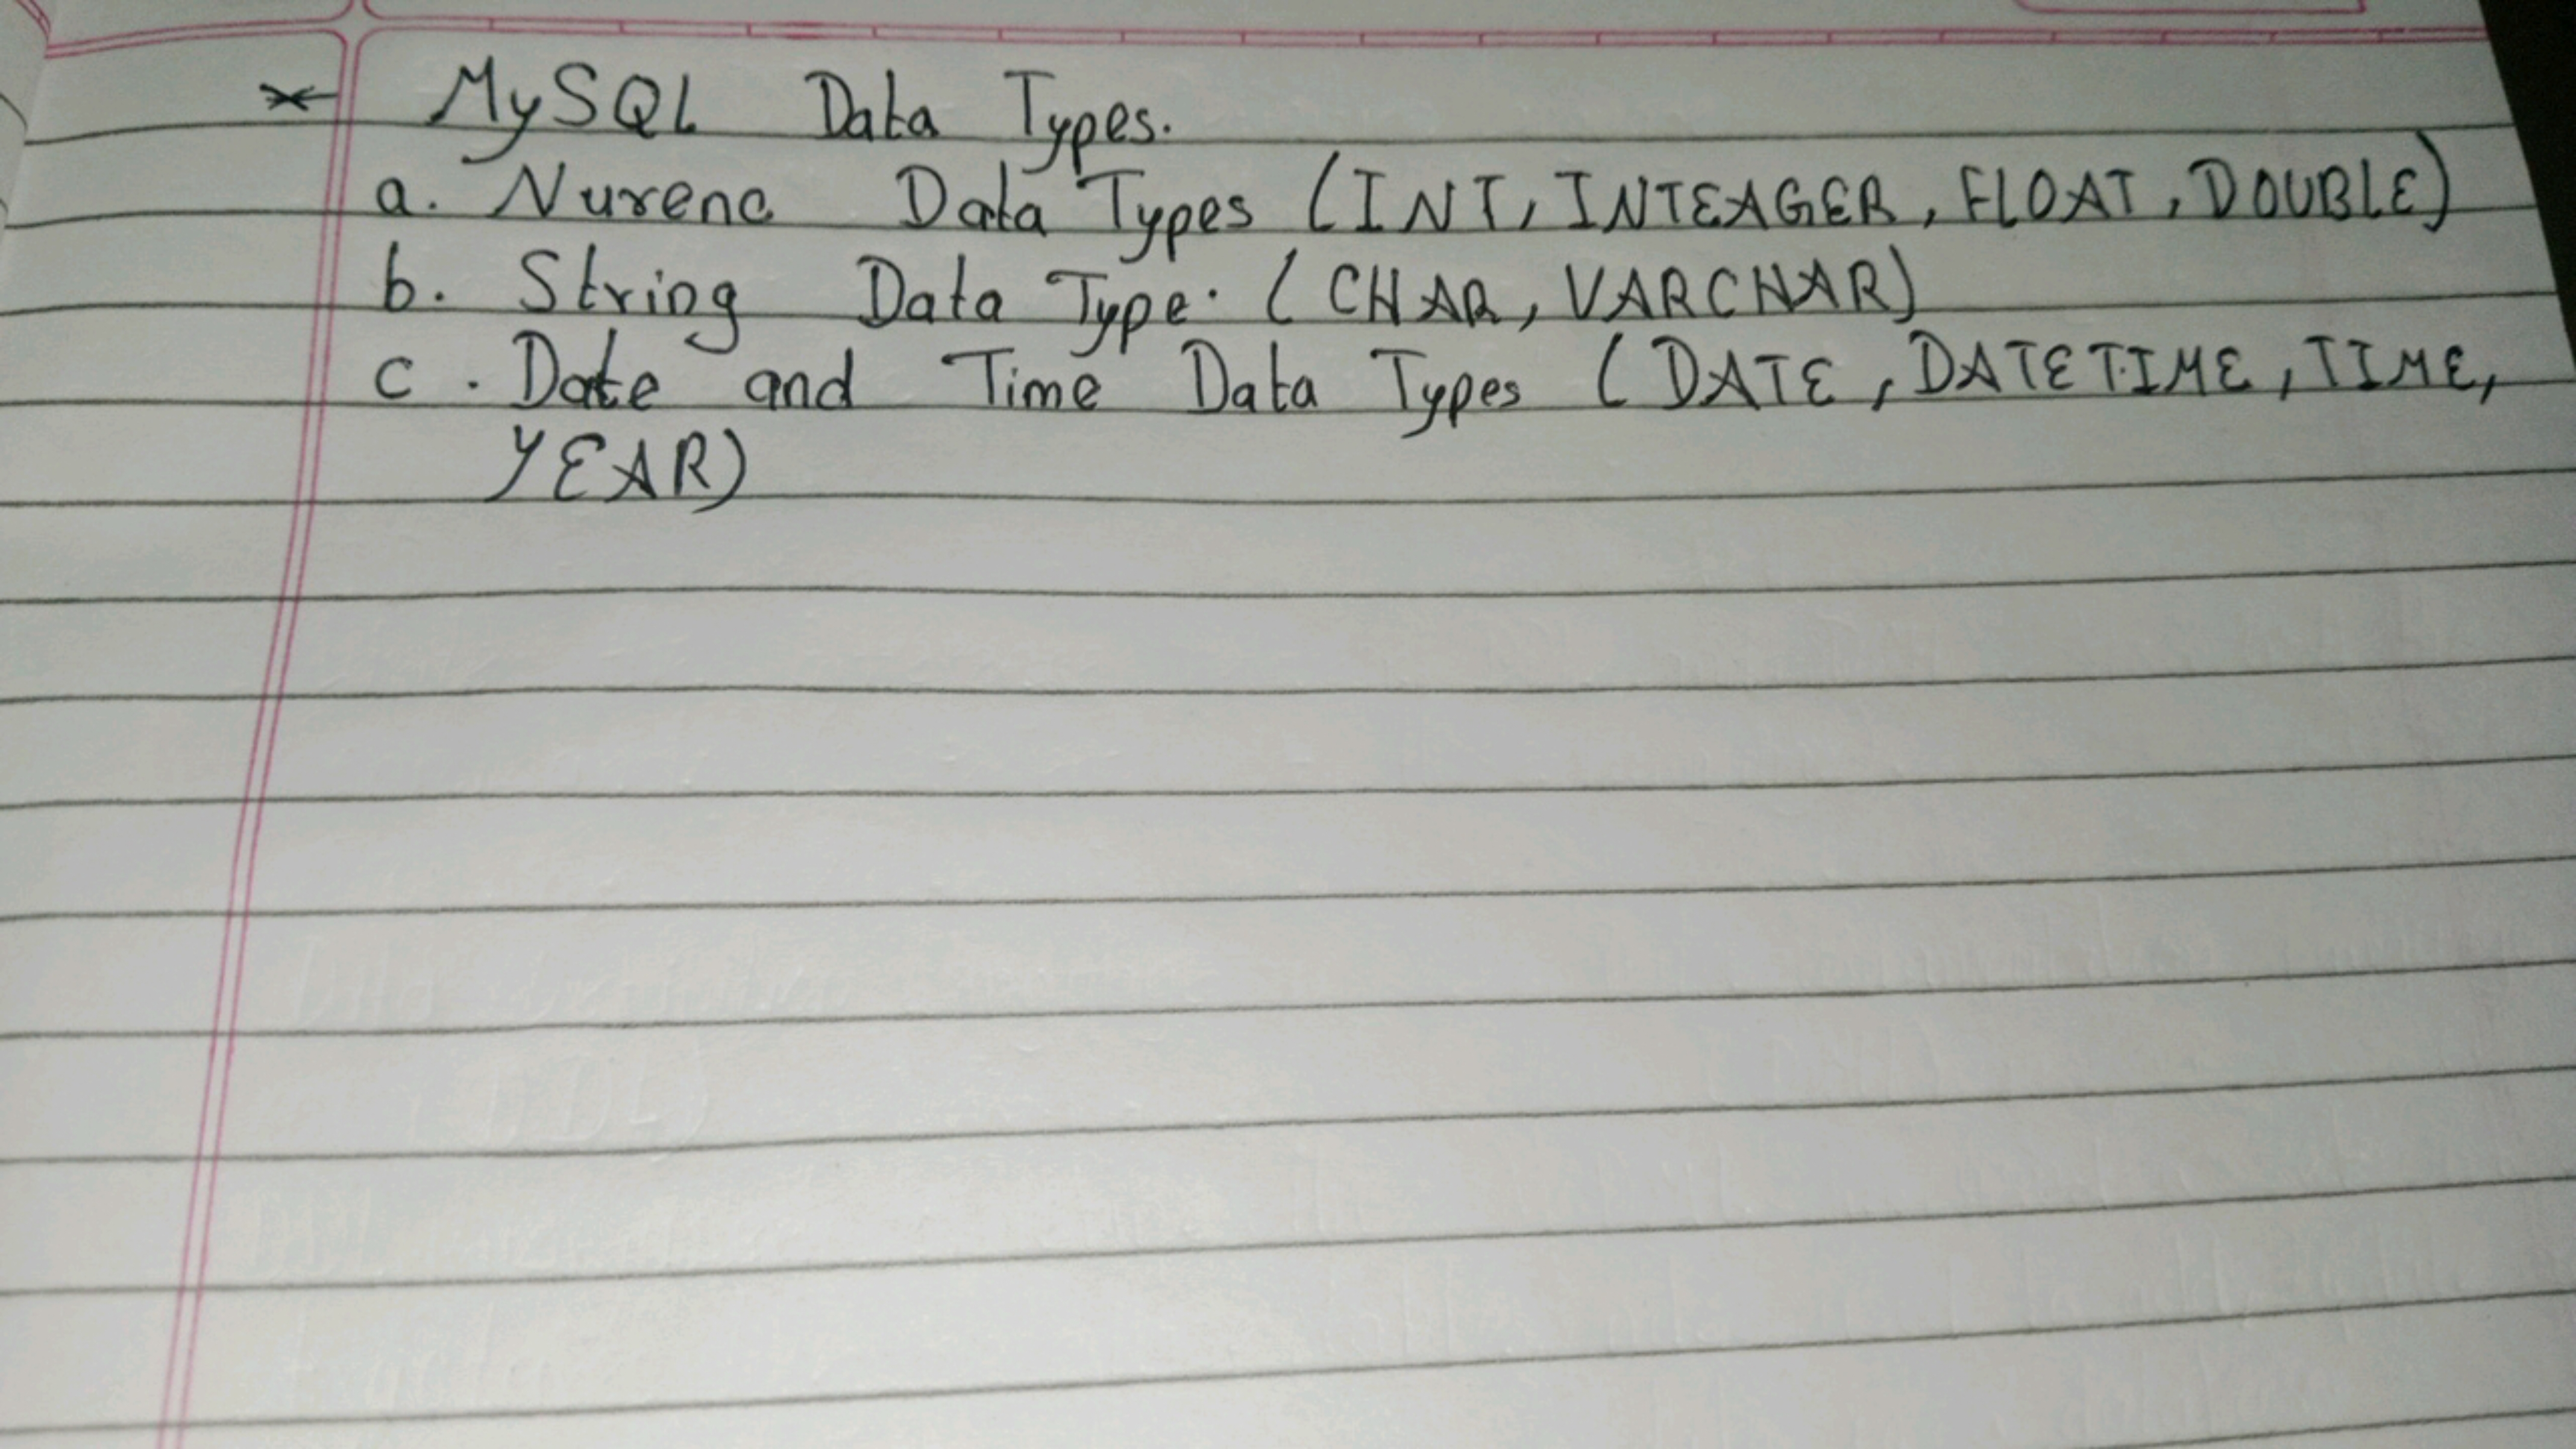 * MySQL Data Types.
a. Nurenc Data Types (INT, INTEAGER, FLOAT, DOUBLE)
b. String Data Type. (CHAR, VARCHAR)
c. Date and Time Data Types (DATE, DATETIME, TIME,
YEAR)